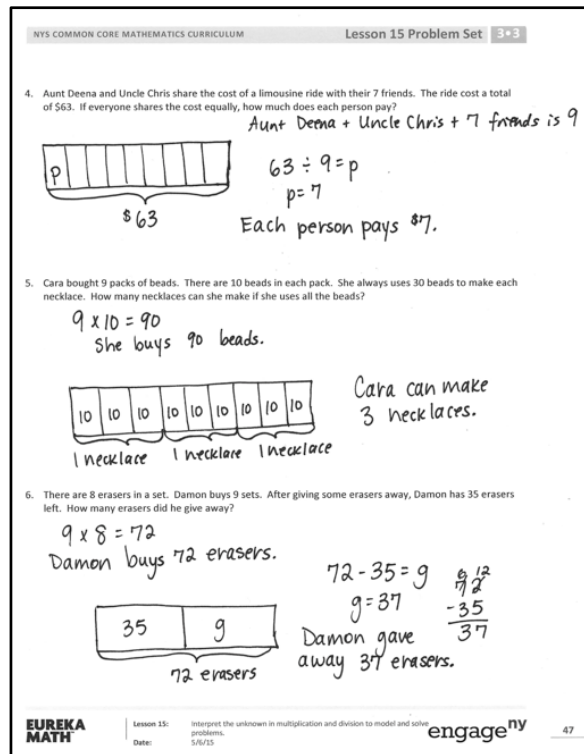 NYS COMMON CORE MATHEMATICS CURRICULUM
Lesson 15 Problem Set 3•3
4. Aunt Deena and Uncle Chris share the cost of a limousine ride with their 7 friends. The ride cost a total
of $63. If everyone shares the cost equally, how much does each person pay?
Aunt Deena + Uncle Chris + 7 friends is 9
P
$63
63 ÷ 9 = p
p = 7
Each person pays $7.
5. Cara bought 9 packs of beads. There are 10 beads in each pack. She always uses 30 beads to make each
necklace. How many necklaces can she make if she uses all the beads?
9 x 10 = 90
She buys 90 beads.
10 10 10 10 10 10 10 10 10
1 necklace 1 necklace 1 necklace
Cara can make
3 necklaces.
6. There are 8 erasers in a set. Damon buys 9 sets. After giving some erasers away, Damon has 35 erasers
left. How many erasers did he give away?
9 x 8 = 72
Damon buys 72 erasers.
35 g
72 erasers
72 - 35 = g
g = 37
Damon gave
away 37 erasers.
6 12
72
-35
37
EUREKA
MATH
Lesson 15: Interpret the unknown in multiplication and division to model and solve
problems.
Date: 5/6/15
engageny
47